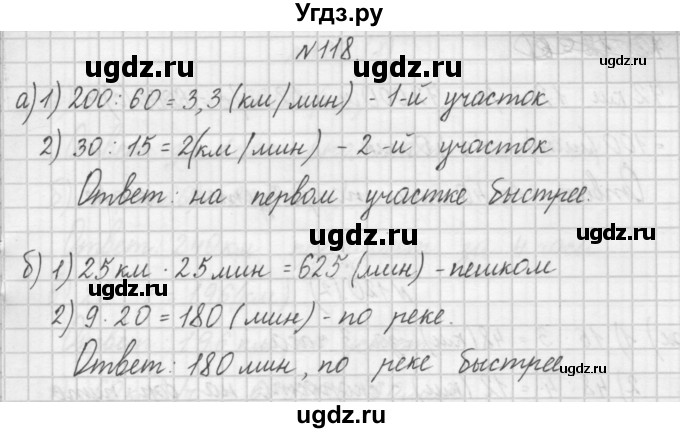 Угдз.ру
№118
ugdz.ru ugdz.ru
а) 1) 200 : 60 = 3,3 (км/мин) - 1-й участок
2) 30 : 15 = 2(км/мин) - 2-й участок
ugdz.ru ugdz.ru
Ответ: на первом участке быстрее.
ugdz.ru ugdz.ru
б) 1) 25 км · 25 мин = 625 (мин) - пешком
2) 9 · 20 = 180 (мин) - по реке.
ugdz.ru ugdz.ru
Ответ: 180 мин, по реке быстрее.
ugdz.ru